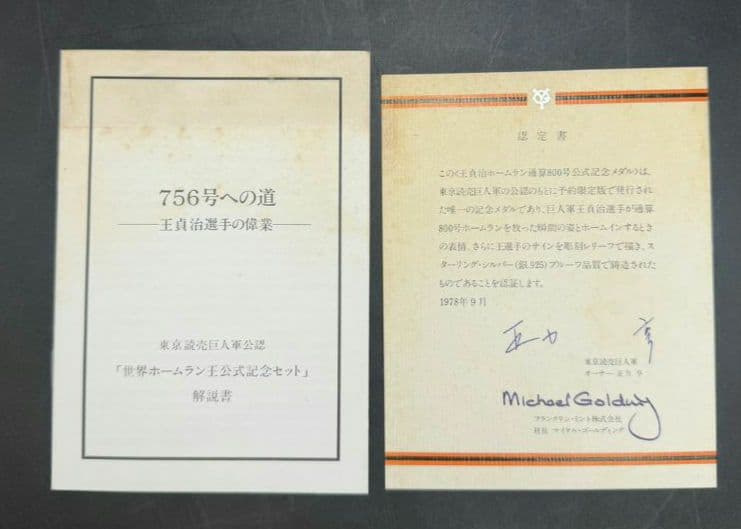 756号への道
王貞治選手の偉業
東京読売巨人軍公認
「世界ホームラン王公式記念セット」
解説書
認定書
この〈王貞治ホームラン通算800号公式記念メダル〉は、
東京読売巨人軍の公認のもとに予約限定版で発行され
た唯一の記念メダルであり、巨人軍王貞治選手が通算
800号ホームランを放った瞬間の姿とホームインするとき
の表情、さらに王選手のサインを彫刻レリーフで描き、ス
ターリング・シルバー(銀.925)プルーフ品質で鋳造された
ものであることを認証します。
1978年9月
正力 亨
東京読売巨人軍
オーナー 正力 亨
Michael Golding
フランクリン・ミント株式会社
社長 マイケル・ゴールディング